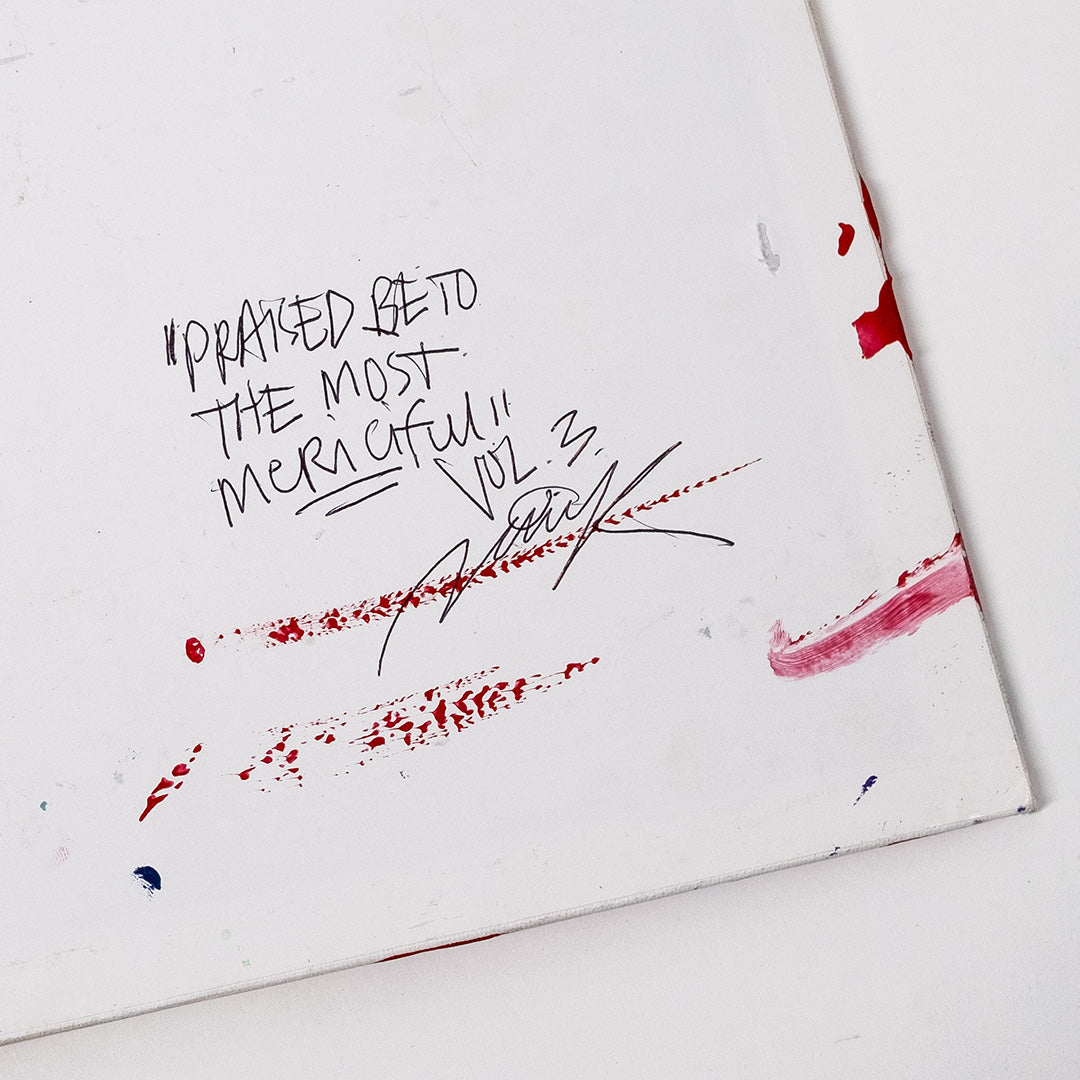 "PRAISED BE TO
THE MOST
MERCIFUL"
VOL. 3.